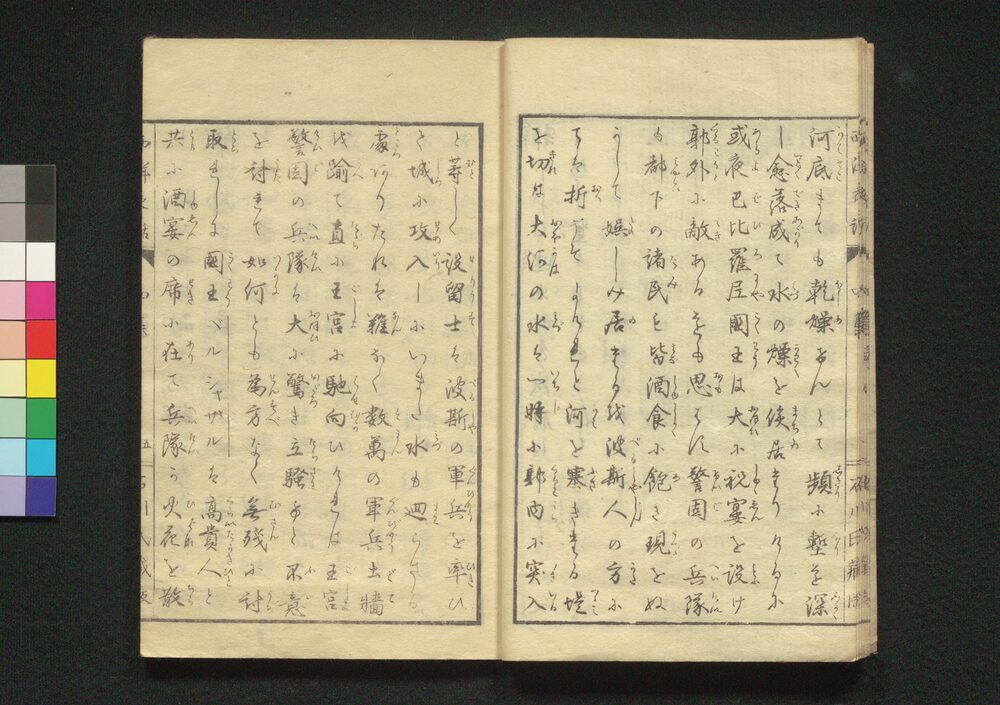 河底までも乾燥さんとて頻に塹を深
し愈落成て水の燥を俟居まりけるに
或夜巴比羅尼國王は大に祝宴を設け
郭外に敵あるをも思はず警固の兵隊
も都下の諸民も皆酒食に飽き現をぬ
かして娯しみ居まる代波斯人の方に
ては折こそよけれと河を塞きまる堤
を切は大河の水は一時に郭内に突入
と等しく設留士は波斯の軍兵を率ひ
て城に攻入しにいまだ水も廻らざる
處ありたれば難なく数萬の軍兵土牆
を踰て直に王宮に馳向ひければ王宮
警固の兵隊は大に驚き立騒ぎしも不意
を討れて如何とも為方なく無残に討
取れしは國王ベルシャザルは高貴人と
共に酒宴の席に在て兵隊が火花を散